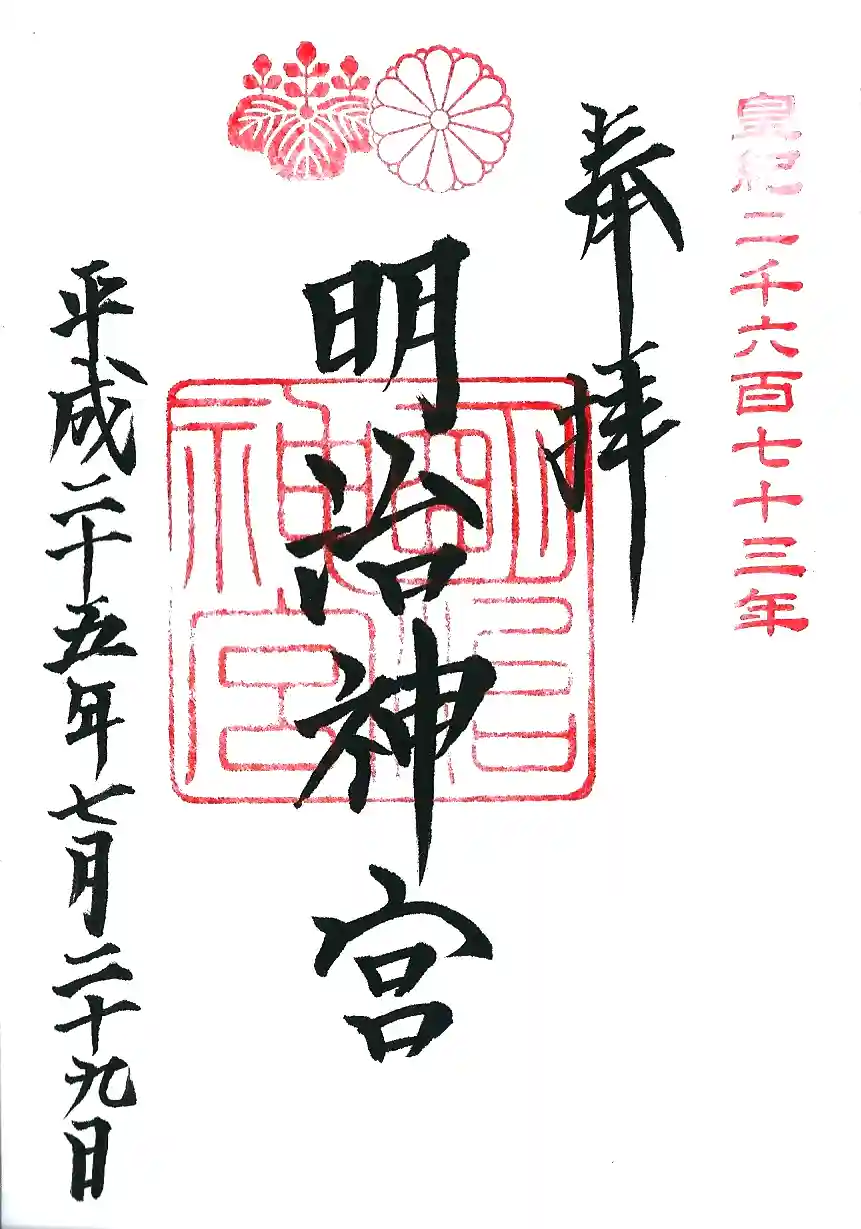 皇紀二千六百七十三年
奉拝
明治神宮
明治神宮
平成二十五年七月二十九日